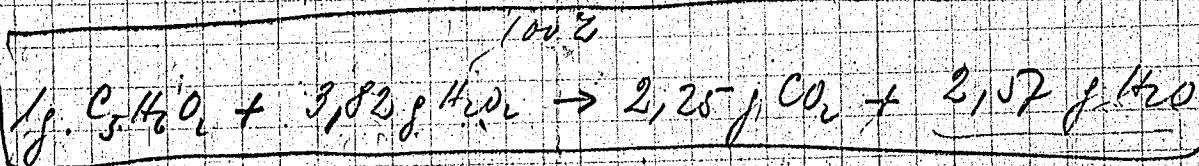 100%
1g. C₅H₆O₂ + 3,82 g H₂O₂ → 2,25 g CO₂ + 2,57 g H₂O